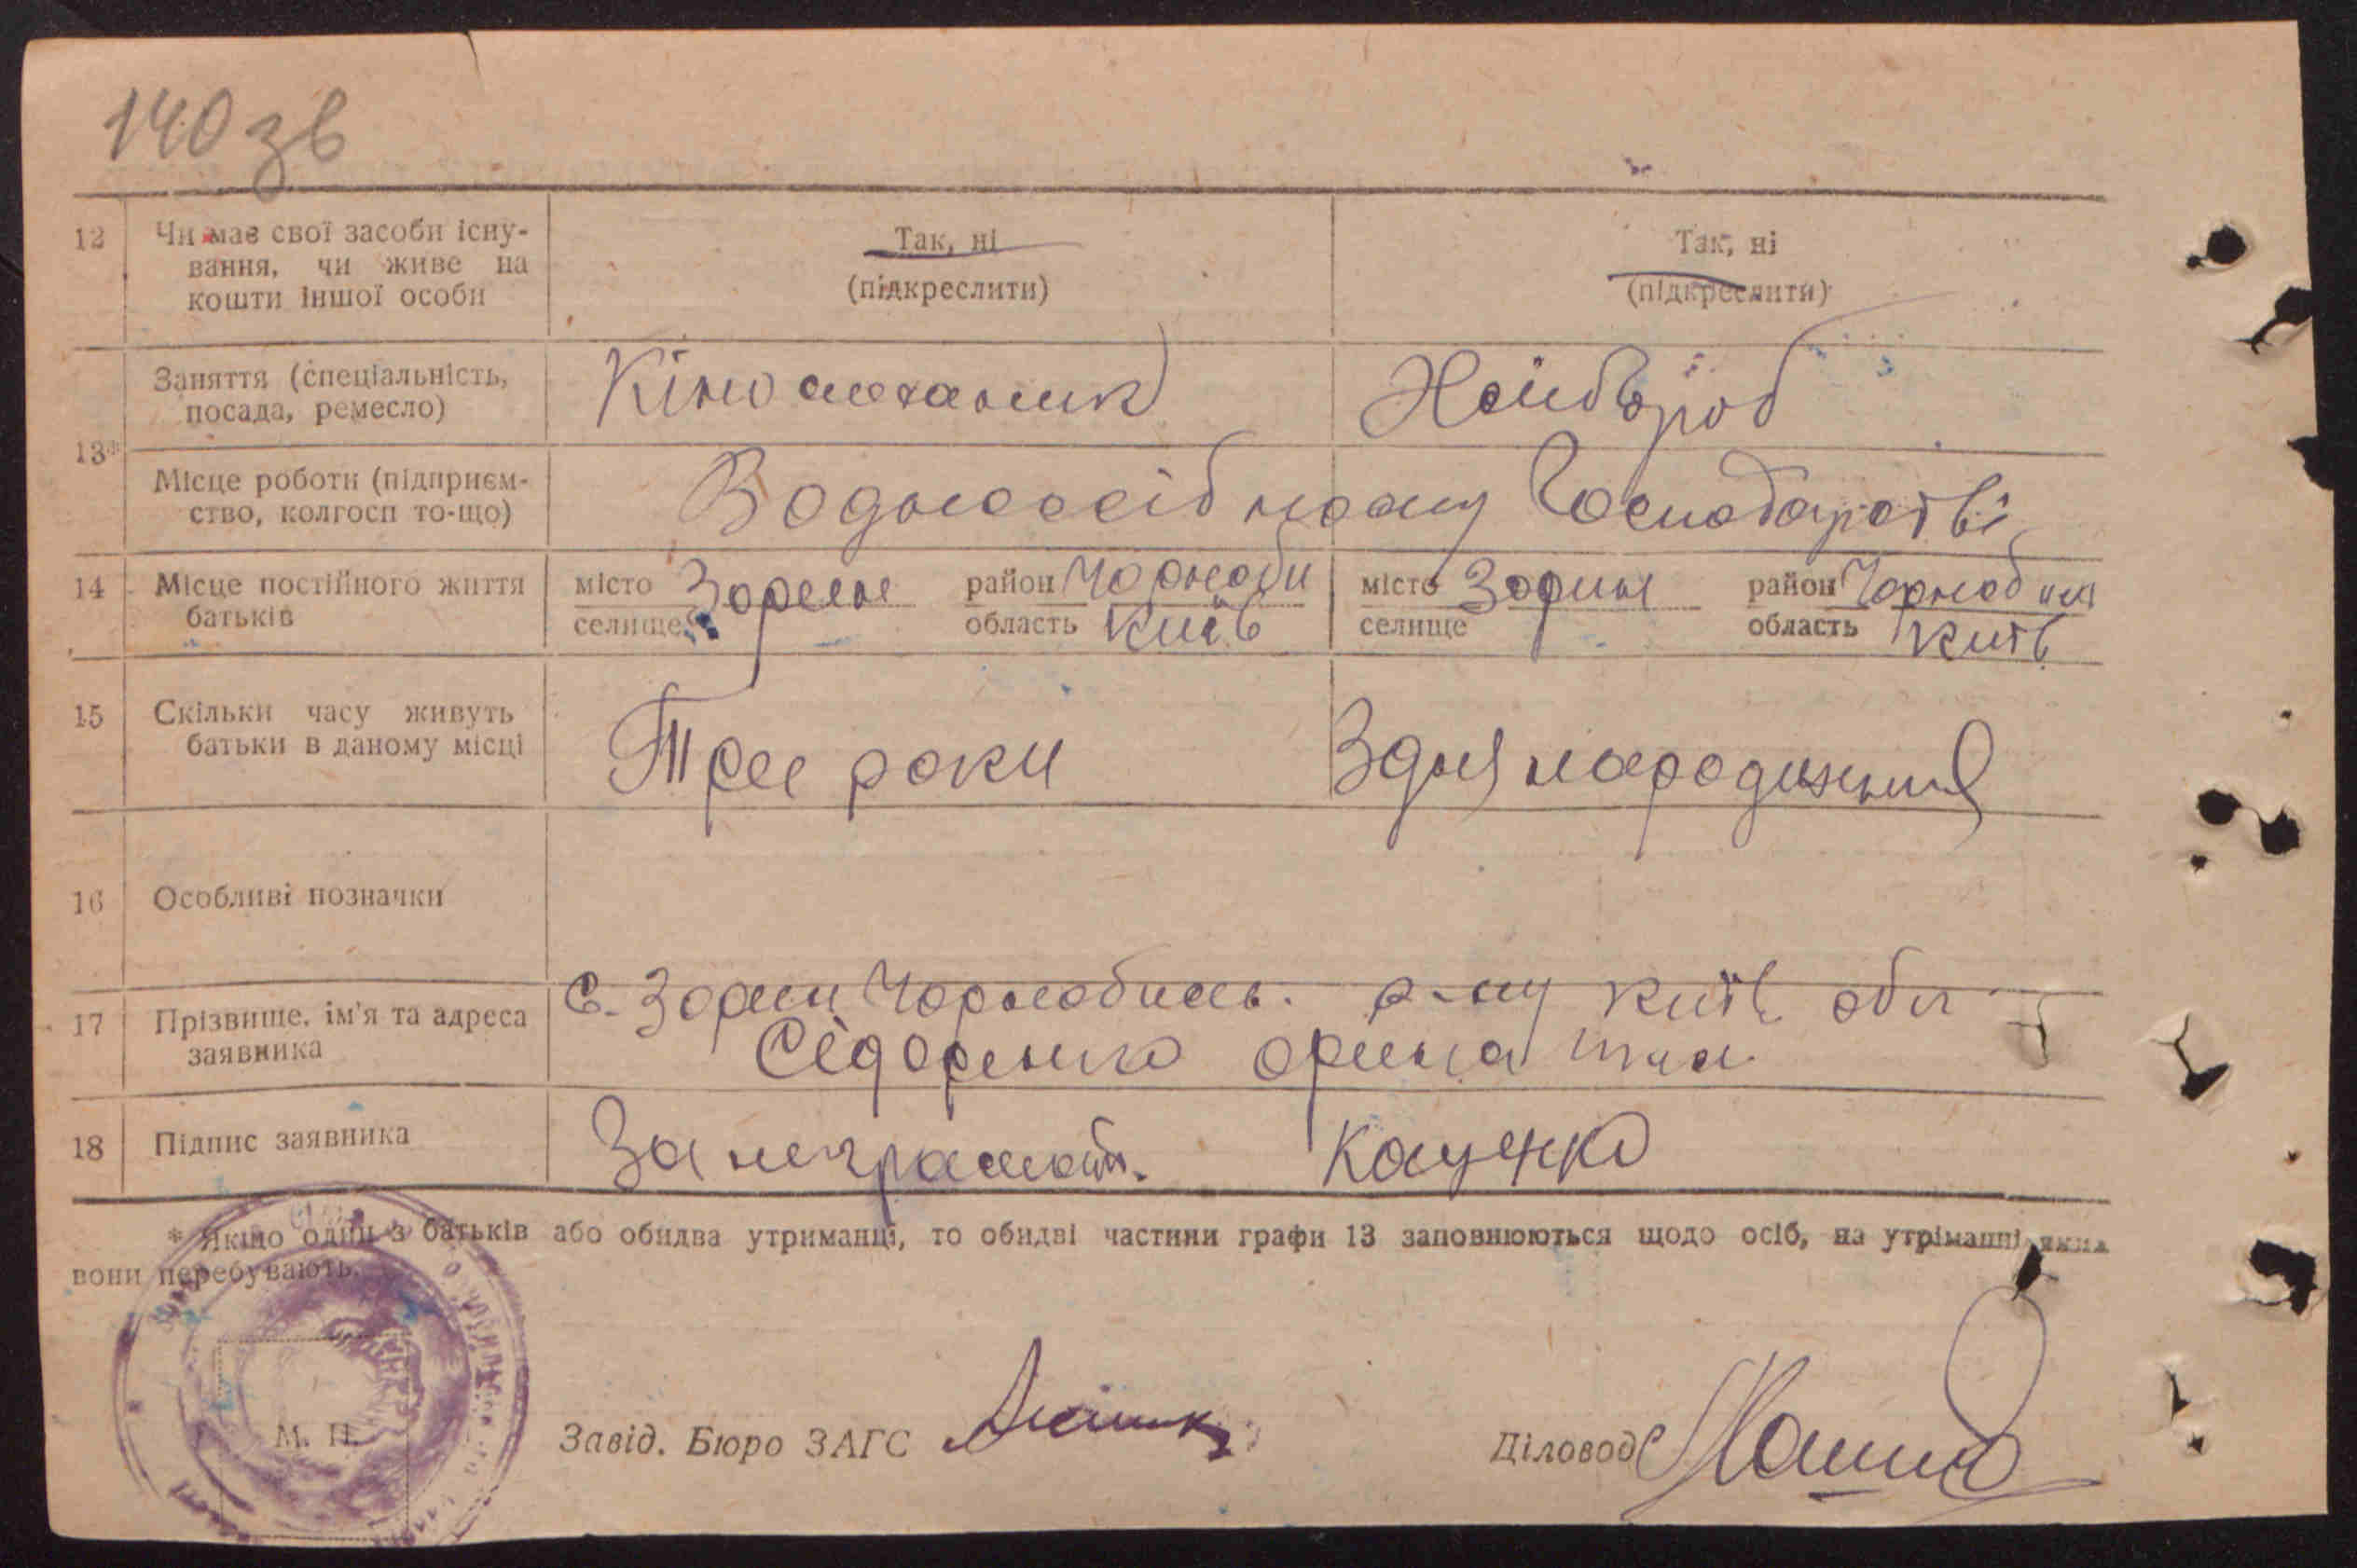 140 зв
12 Чи має свої засоби існу-
вання, чи живе на
кошти іншої особи
Так, ні
(підкреслити)
Так, ні
(підкреслити)
13*
Заняття (спеціальність,
посада, ремесло)
Кіномеханик
Місце роботи (підприєм-
ство, колгосп то-що)
Господарстві
14 Місце постійного життя
батьків
місто Зорин район Чорноби
селище область Київ
місто Зорин район Чорнобил
селище область Київ
15 Скільки часу живуть
батьки в даному місці
Три роки
Здня народження
16 Особливі позначки
17 Прізвище, ім'я та адреса
заявника
с. Зорин Чорнобиль. р-ну Київ обл
Сідоренко Орина
18 Підпис заявника
За неграмотн. Коценко
* Якщо один з батьків або обидва утриманці, то обидві частини графи 13 заповнюються щодо осіб, на утріманні яких
вони перебувають.
М. П.
Завід. Бюро ЗАГС
Діловод